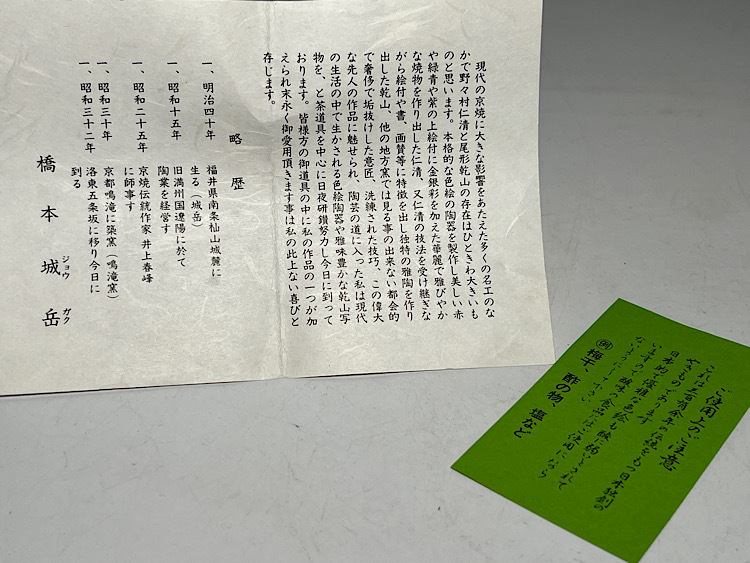 現代の京焼に大きな影響をあたえた多くの名工のな
かで野々村仁清と尾形乾山の存在はひときわ大きいも
のと思います。本格的な色絵の陶器を製作し美しい赤
や緑青や紫の上絵付に金銀彩を加えた華麗で雅びやか
な焼物を作り出した仁清、又仁清の技法を受け継ぎな
がら絵付や書、画賛等に特徴を出し独特の雅陶を作り
出した乾山、他の地方窯では見る事の出来ない都会的
で奢侈で垢抜けした意匠、洗練された技巧、この偉大
な先人の作品に魅せられ、陶芸の道に入った私は現代
の生活の中で生かされる色絵陶器や雅味豊かな乾山写
物を、と茶道具を中心に日夜研鑽努力し今日に到って
おります。皆様方の御道具の中に私の作品の一つが加
えられ末永く御愛用頂きます事は私の此上ない喜びと
存じます。
略歴
一、明治四十年
福井県南条杣山城麓に
生る（城岳）
一、昭和十五年
旧満州国遼陽に於て
陶業を経営す
一、昭和二十五年
京焼伝統作家 井上春峰
に師事す
一、昭和三十年
京都鳴滝に築窯（鳴滝窯）
一、昭和三十二年
洛東五条坂に移り今日に
到る
橋本城岳
ジョウ ガク
ご使用上のご注意
これは三百有余年の伝統をもつ日本独創の
やきものであります
日本的な優雅な色絵も酸に弱いとされて
いますので酸味の食品にはご使用になら
ないようにして下さい
例 梅干、酢の物、塩など